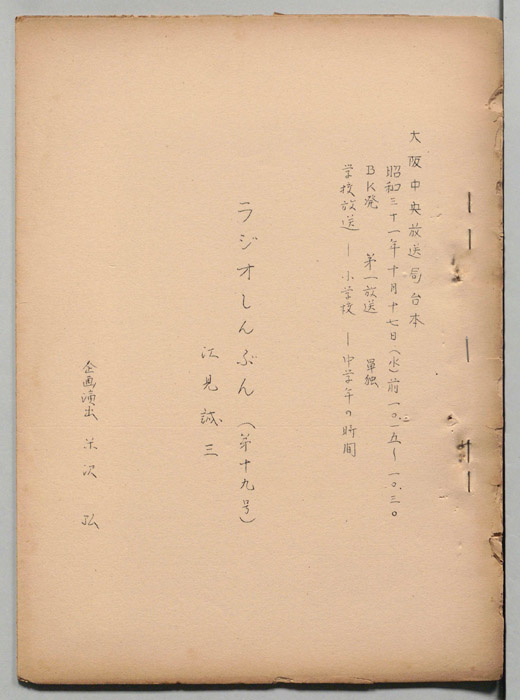 大阪中央放送局台本
昭和三十一年十月十七日(水)前一〇.一五~一〇.三〇
BK発 第一放送 単独
学校放送 ー 小学校 ー 中学年の時間
ラジオしんぶん (第十九号)
江見誠三
企画演出 米沢 弘